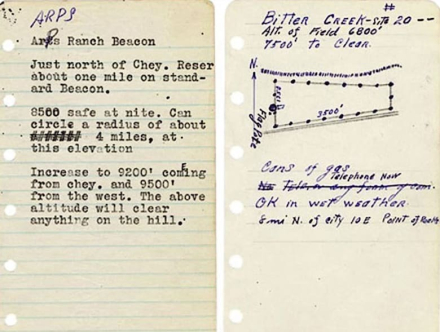 ARPS
Arps Ranch Beacon
Just north of Chey. Reser
about one mile on stand-
ard Beacon.
8500 safe at nite. Can
circle a radius of about
4 miles, at
this elevation
Increase to 9200' comEng
from chey. and 9500'
from the west. The above
altitude will clear
anything on the hill.
Bitter Creek - Site #20 --
Alt. of Field 6800'
7500' to Clear.
N.
3500'
Flag Pole
Cans of gas
Telephone Now
No Telephone any form of com.
OK in wet weather.
8 mi N. of city 10 E Point of Rocks